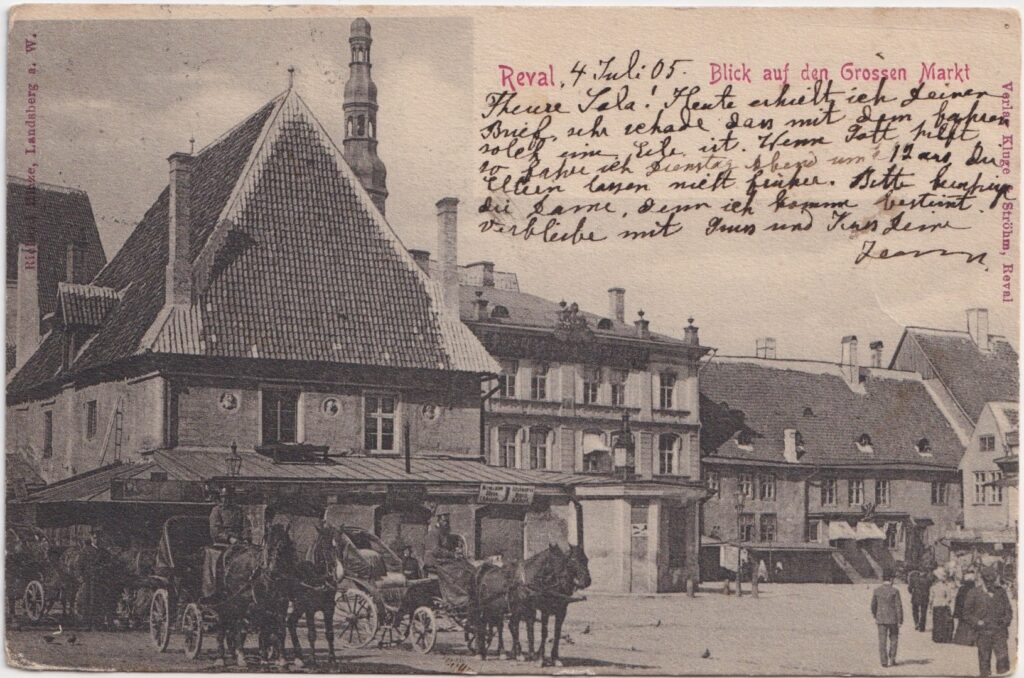 Reval, 4 Juli 05. Blick auf den Grossen Markt
Theure Lola! Heute erhielt ich Deinen
Brief, sehr schade dass mit dem
solch eine Eile ist. Wenn Gott hilft
so fahre ich Dienstag Abend um 12 aus, die
Eltern lassen nicht früher. Bitte
die Dame, denn ich komme bestimmt.
Verbleibe mit Gruss und Kuss Deine
Verlag Kluge Ströhm, Reval
Landsberg a. W.